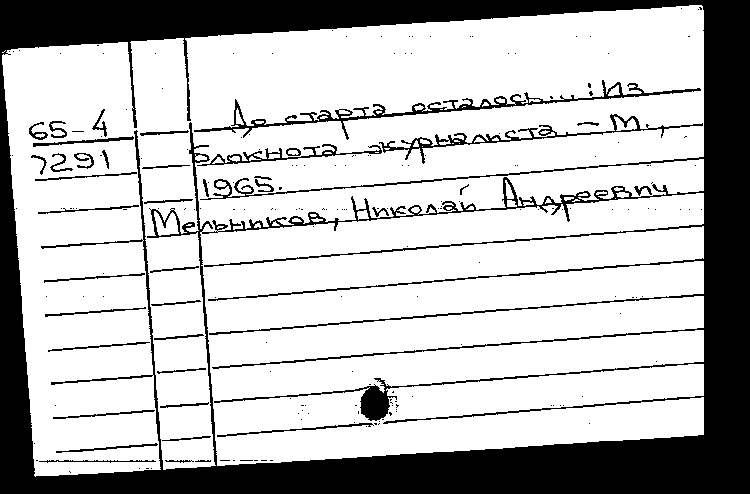 65-4 До старта осталось... : Из
7291 блокнота журналиста. - М.,
1965.
Мельников, Николай Андреевич.